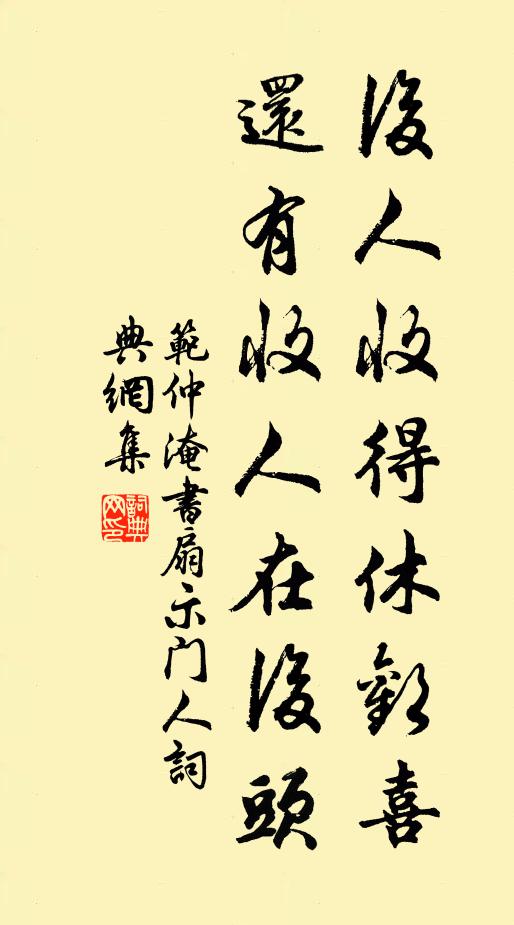 後人收得休歡喜
還有收人在後頭
範仲淹書扇示門人詞
典網集
詞典
网印